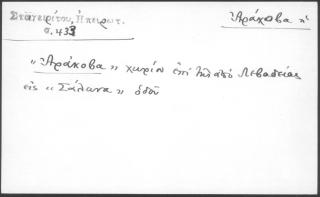 Σταγειρίτου, Ηπειρωτ.
σ. 433
Ἀράχοβα ἡ
"Ἀράχοβα" χωρίον ἐπὶ τῆς ἀπὸ Λεβαδείας
εἰς "Σάλωνα" ὁδοῦ